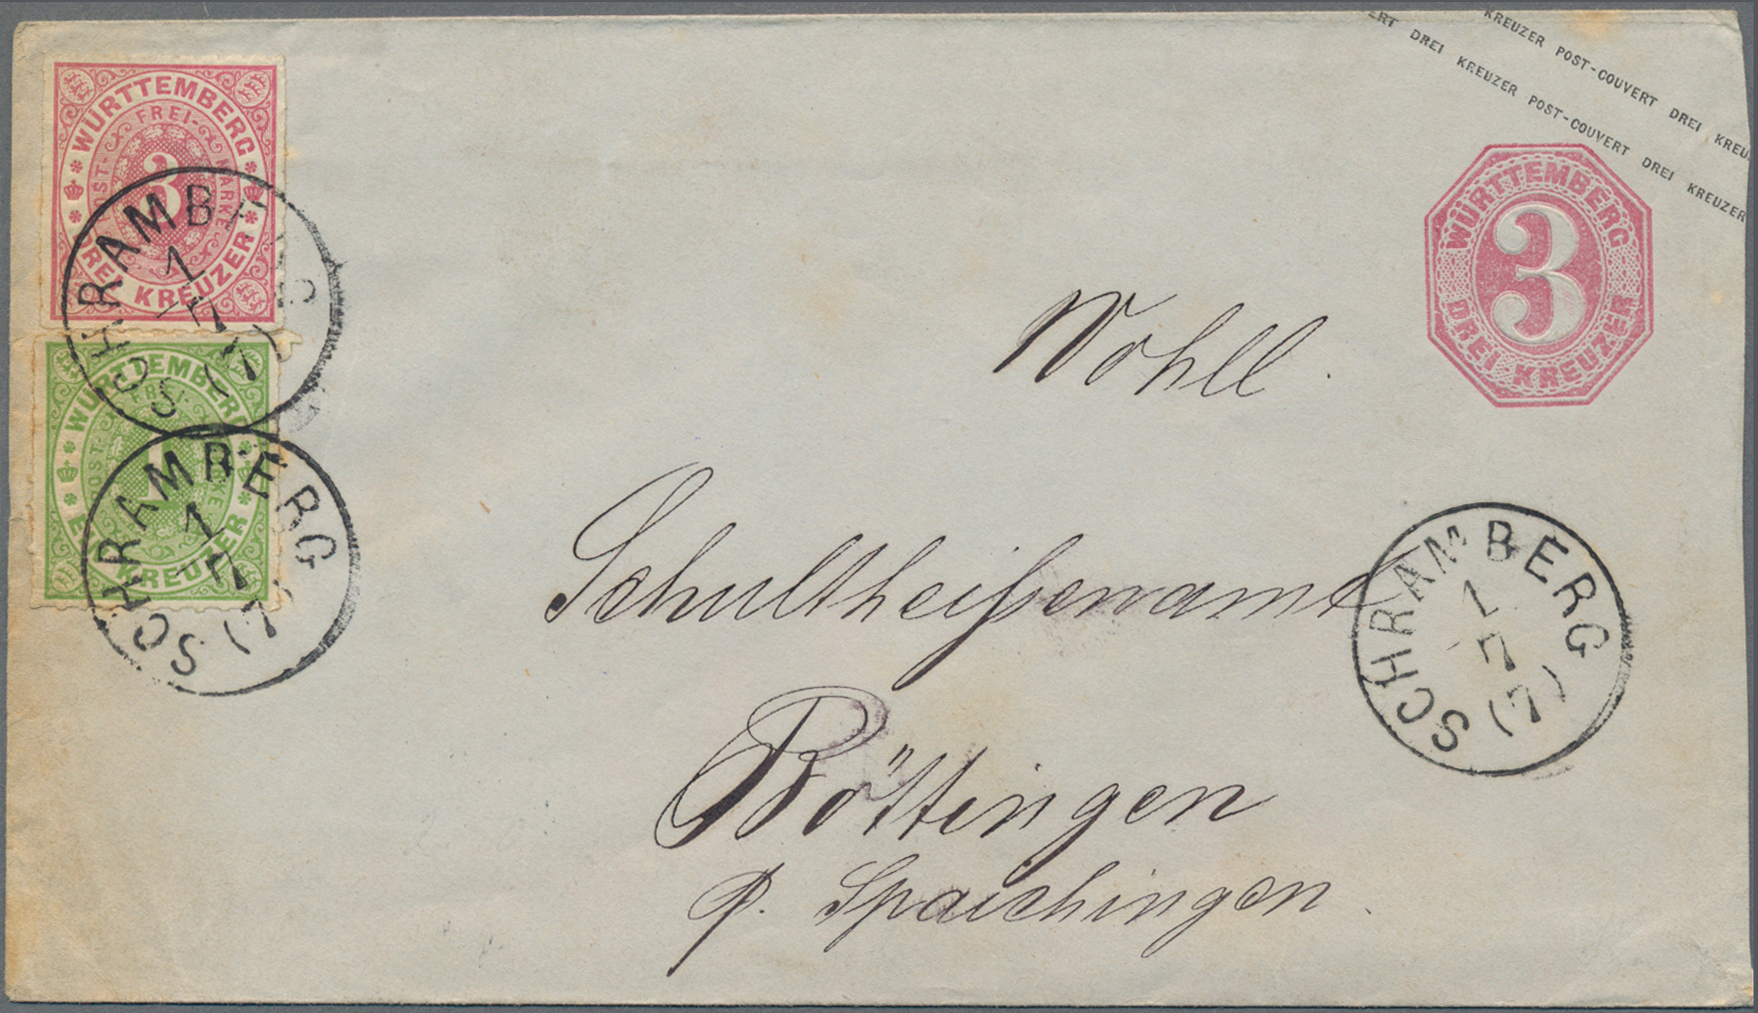 KREUZER POST-COUVERT DREI KREU
ERT DREI KREUZER POST-COUVERT DREI KREUZER
WÜRTTEMBERG
FREI-
POST-
MARKE
3
DREI KREUZER
SCHRAMBERG
1
7
(7)
WÜRTTEMBERG
FREI-
POST-
MARKE
1
EIN KREUZER
SCHRAMBERG
1
7
(7)
WÜRTTEMBERG
3
DREI KREUZER
Wohll.
Schultheißenamt
Böttingen
p. Spaichingen.
SCHRAMBERG
1
7
(7)